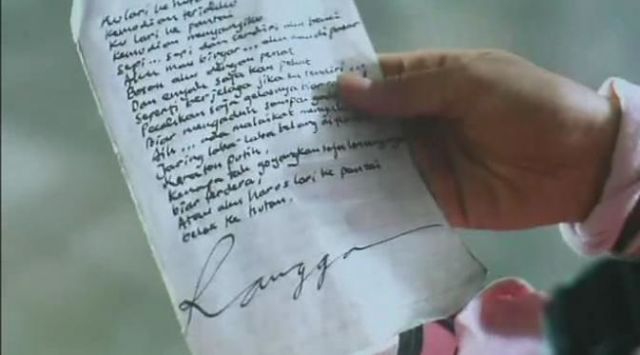 Ku lari ke
kemudian teriakku
Ku lari ke pantai
kemudian menyanyiku
sepi... sepi dan sendiri aku benci
Aku mau bingar... aku mau di pasar
Bosan aku dengan penat
Dan enyah saja kau pekat
Seperti berjelaga jika ku sendiri...
Pecahkan saja gelasnya
Biar mengaduh sampai
Aih... ada malaikat
Jaring laba-laba belang
Keraton putih.
Kenapa tak goyangkan saja loncengnya
biar terdera;
Atau aku harus lari ke pantai
belok ke hutan.
Rangga